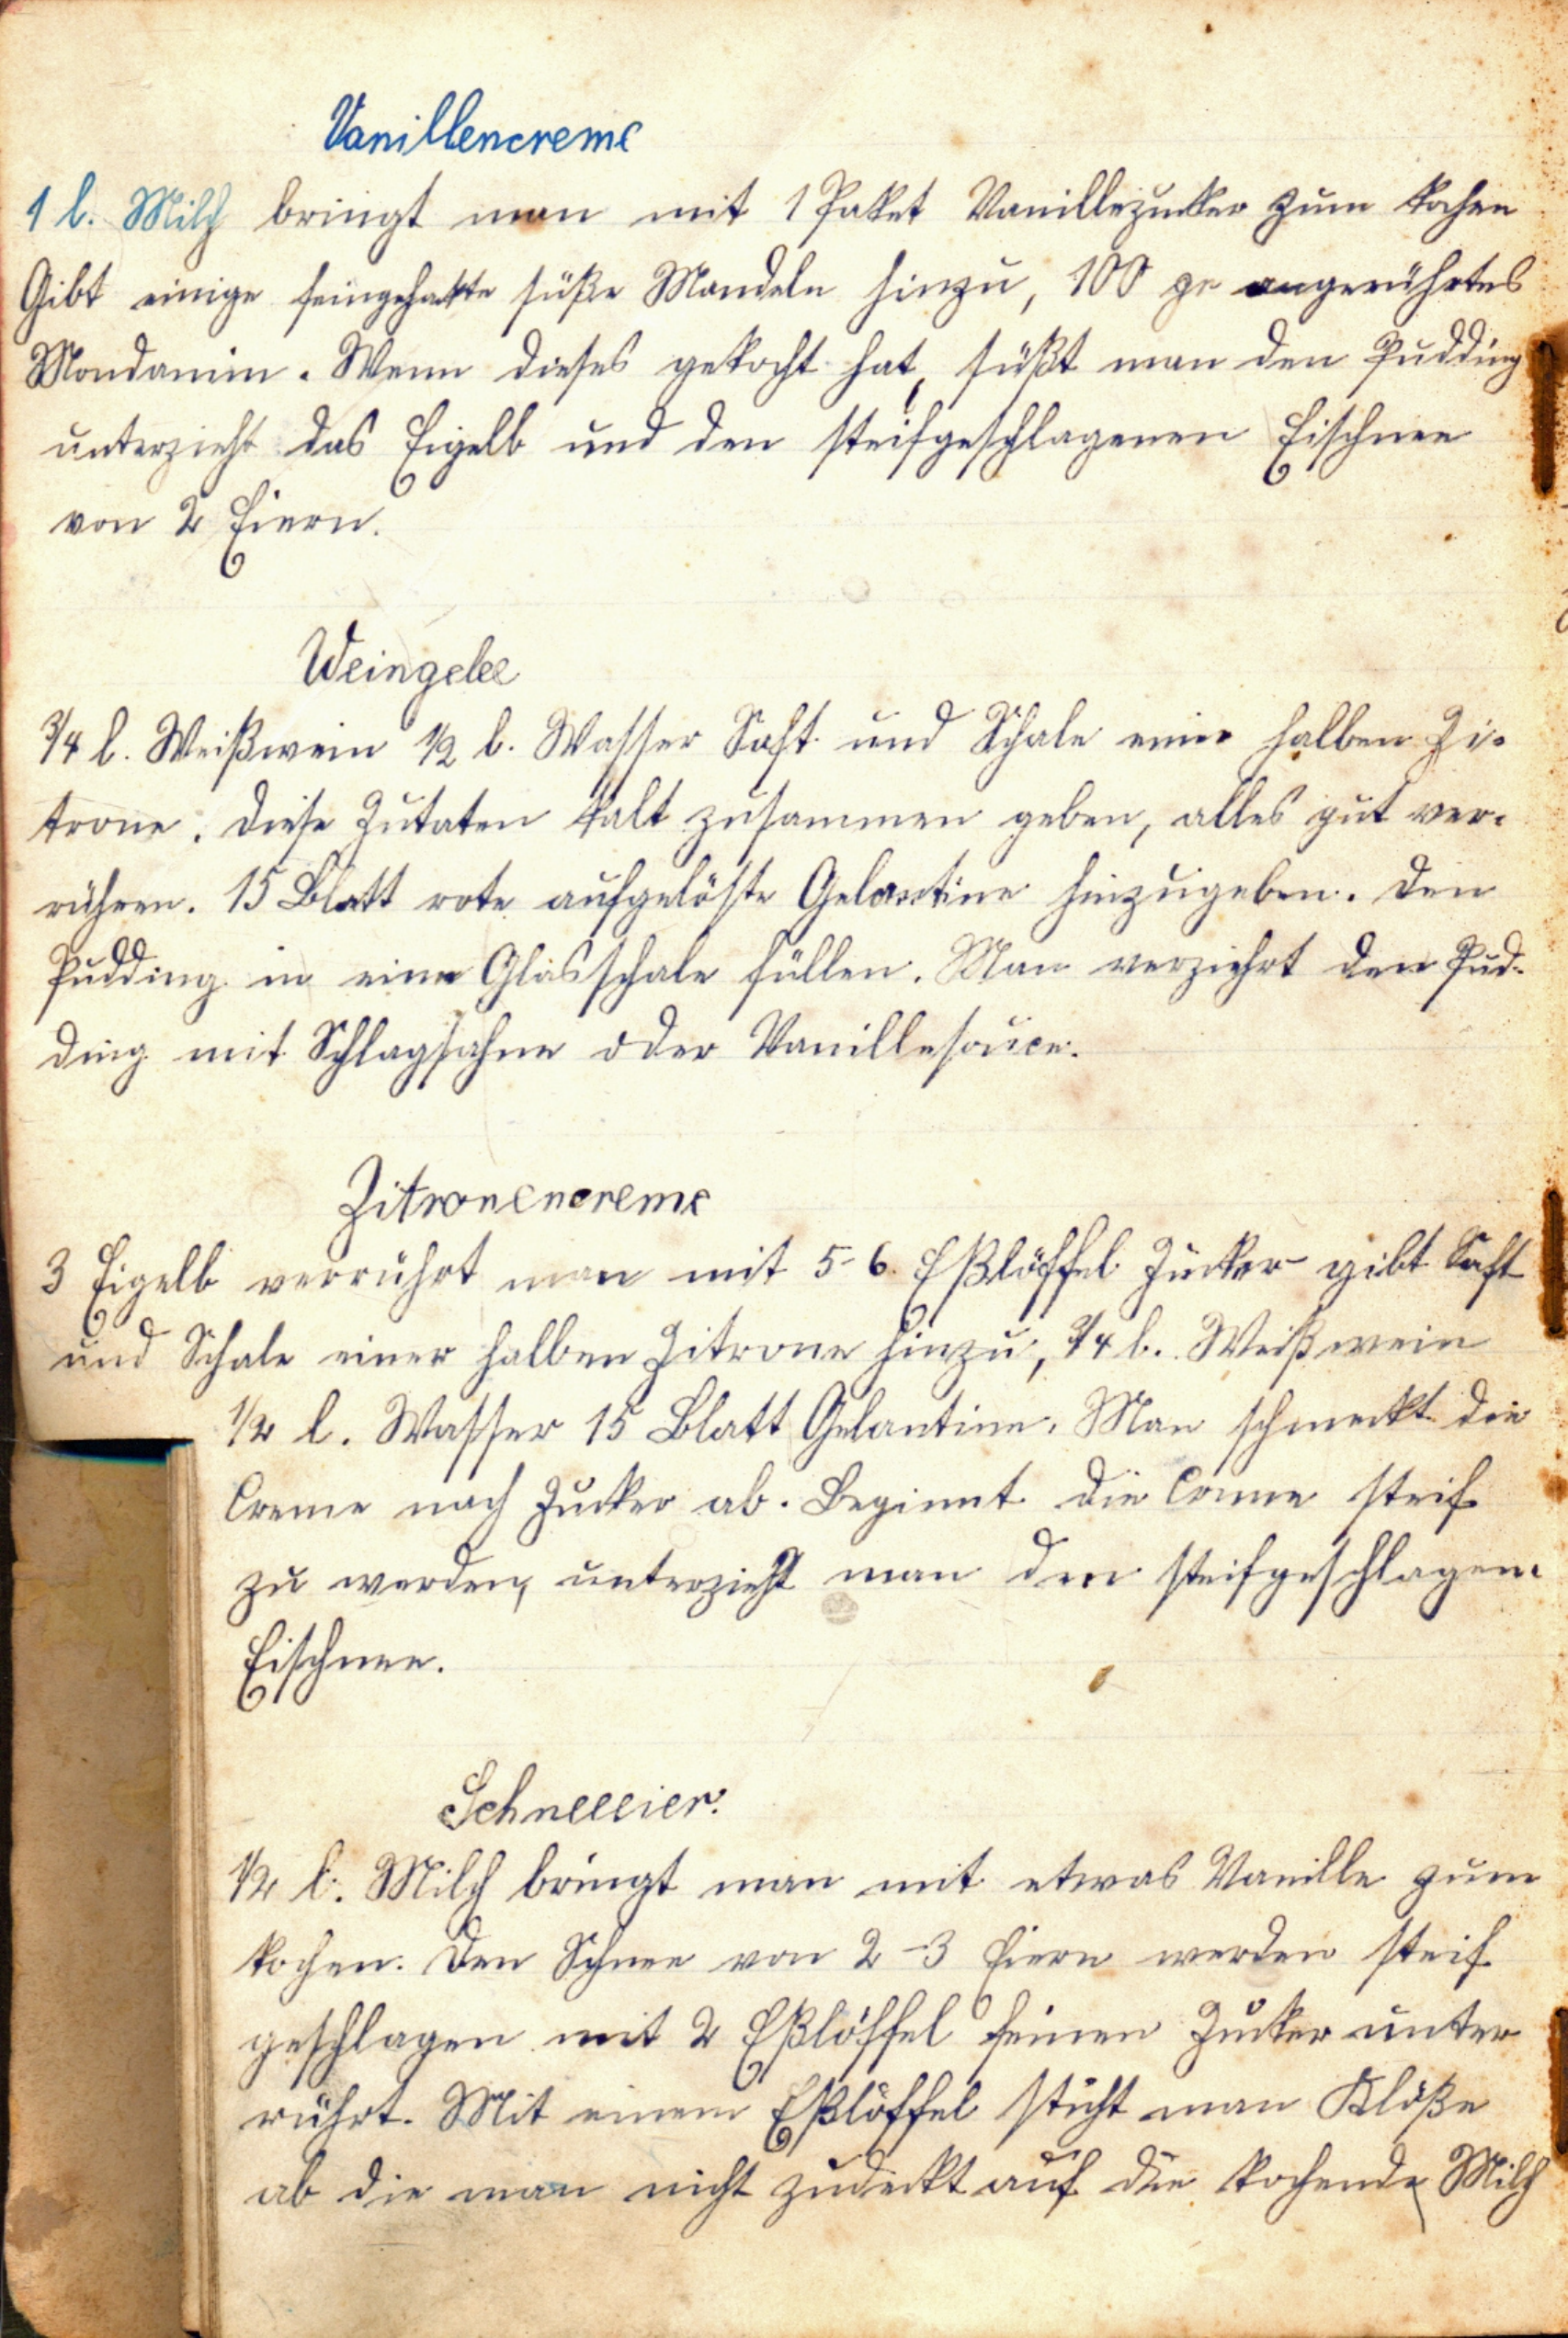 Vanillencreme
1 l. Milch bringt man mit 1 Paket Vanillezucker zum kochen
Gibt einige feingehakte süße Mandeln hinzu, 100 gr angerührtes
Mondamin. Wenn dieses gekocht hat, süßt man den Pudding
unterzieht das Eigelb und den steifgeschlagenen Eischnee
von 2 Eiern.
Weingelee
3/4 l. Weißwein 1/2 l. Wasser Saft und Schale einer halben Zi-
trone. Diese Zutaten kalt zusammen geben, alles gut ver-
rühren. 15 Blatt rote aufgelöste Gelantine hinzugeben. Den
Pudding in eine Glasschale füllen. Man verziehrt den Pud-
ding mit Schlagsahne oder Vanillesouce.
Zitronencreme
3 Eigelb verrührt man mit 5-6 Eßlöffel Zucker gibt Saft
und Schale einer halben Zitrone hinzu, 3/4 l. Weißwein
1/2 l. Wasser 15 Blatt Gelantine. Man schmeckt die
Creme nach Zucker ab. Beginnt die Creme steif
zu werden, unterzieht man den steifgeschlagene
Eischnee.
Schneeeier.
1/2 l. Milch bringt man mit etwas Vanille zum
kochen. Den Schnee von 2-3 Eiern werden steif
geschlagen mit 2 Eßlöffel feinen Zucker unter
rührt. Mit einem Eßlöffel sticht man Klöße
ab die man nicht zudeckt auf die kochende Milch